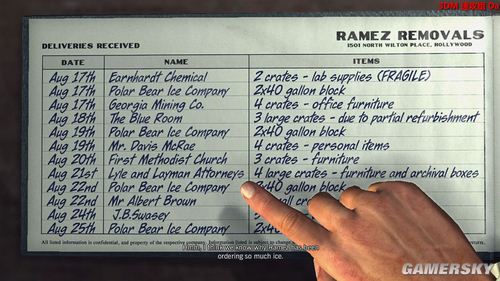 3DM
RAMEZ REMOVALS
1501 NORTH WILTON PLACE, HOLLYWOOD
DELIVERIES RECEIVED
DATE NAME ITEMS
Aug 17th Earnhardt Chemical 2 crates - lab supplies (FRAGILE)
Aug 17th Polar Bear Ice Company 2x40 gallon block
Aug 17th Georgia Mining Co. 4 crates - office furniture
Aug 18th The Blue Room 3 large crates - due to partial refurbishment
Aug 19th Polar Bear Ice Company 2x40 gallon block
Aug 19th Mr. Davis McRae 4 crates - personal items
Aug 20th First Methodist Church 3 crates - furniture
Aug 21st Lyle and Layman Attorneys 4 large crates - furniture and archival boxes
Aug 22nd Polar Bear Ice Company 2x40 gallon block
Aug 22nd Mr Albert Brown small crates
Aug 24th J.B.Swasey
Aug 25th Polar Bear Ice Company 2x40
All listed information is confidential, and property of the respective company. Information listed is subject to change
Hmm, I think we know why Ramez has been
ordering so much ice.
GAMERSKY